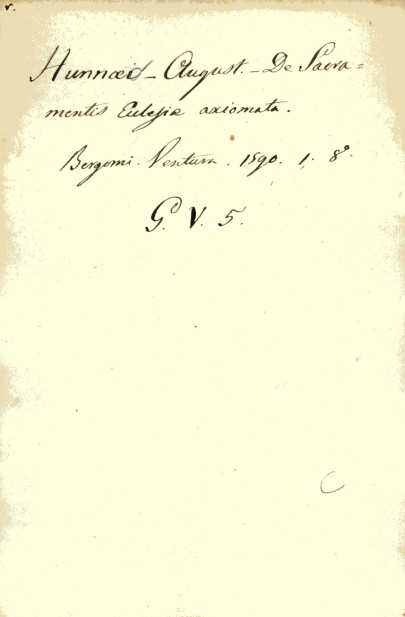 v.
Hunnæi - August. - De Sacra=
mentis Eclesiæ axiomata.
Bergomi. Ventura. 1590. 1. 8º.
G. V. 5.
C